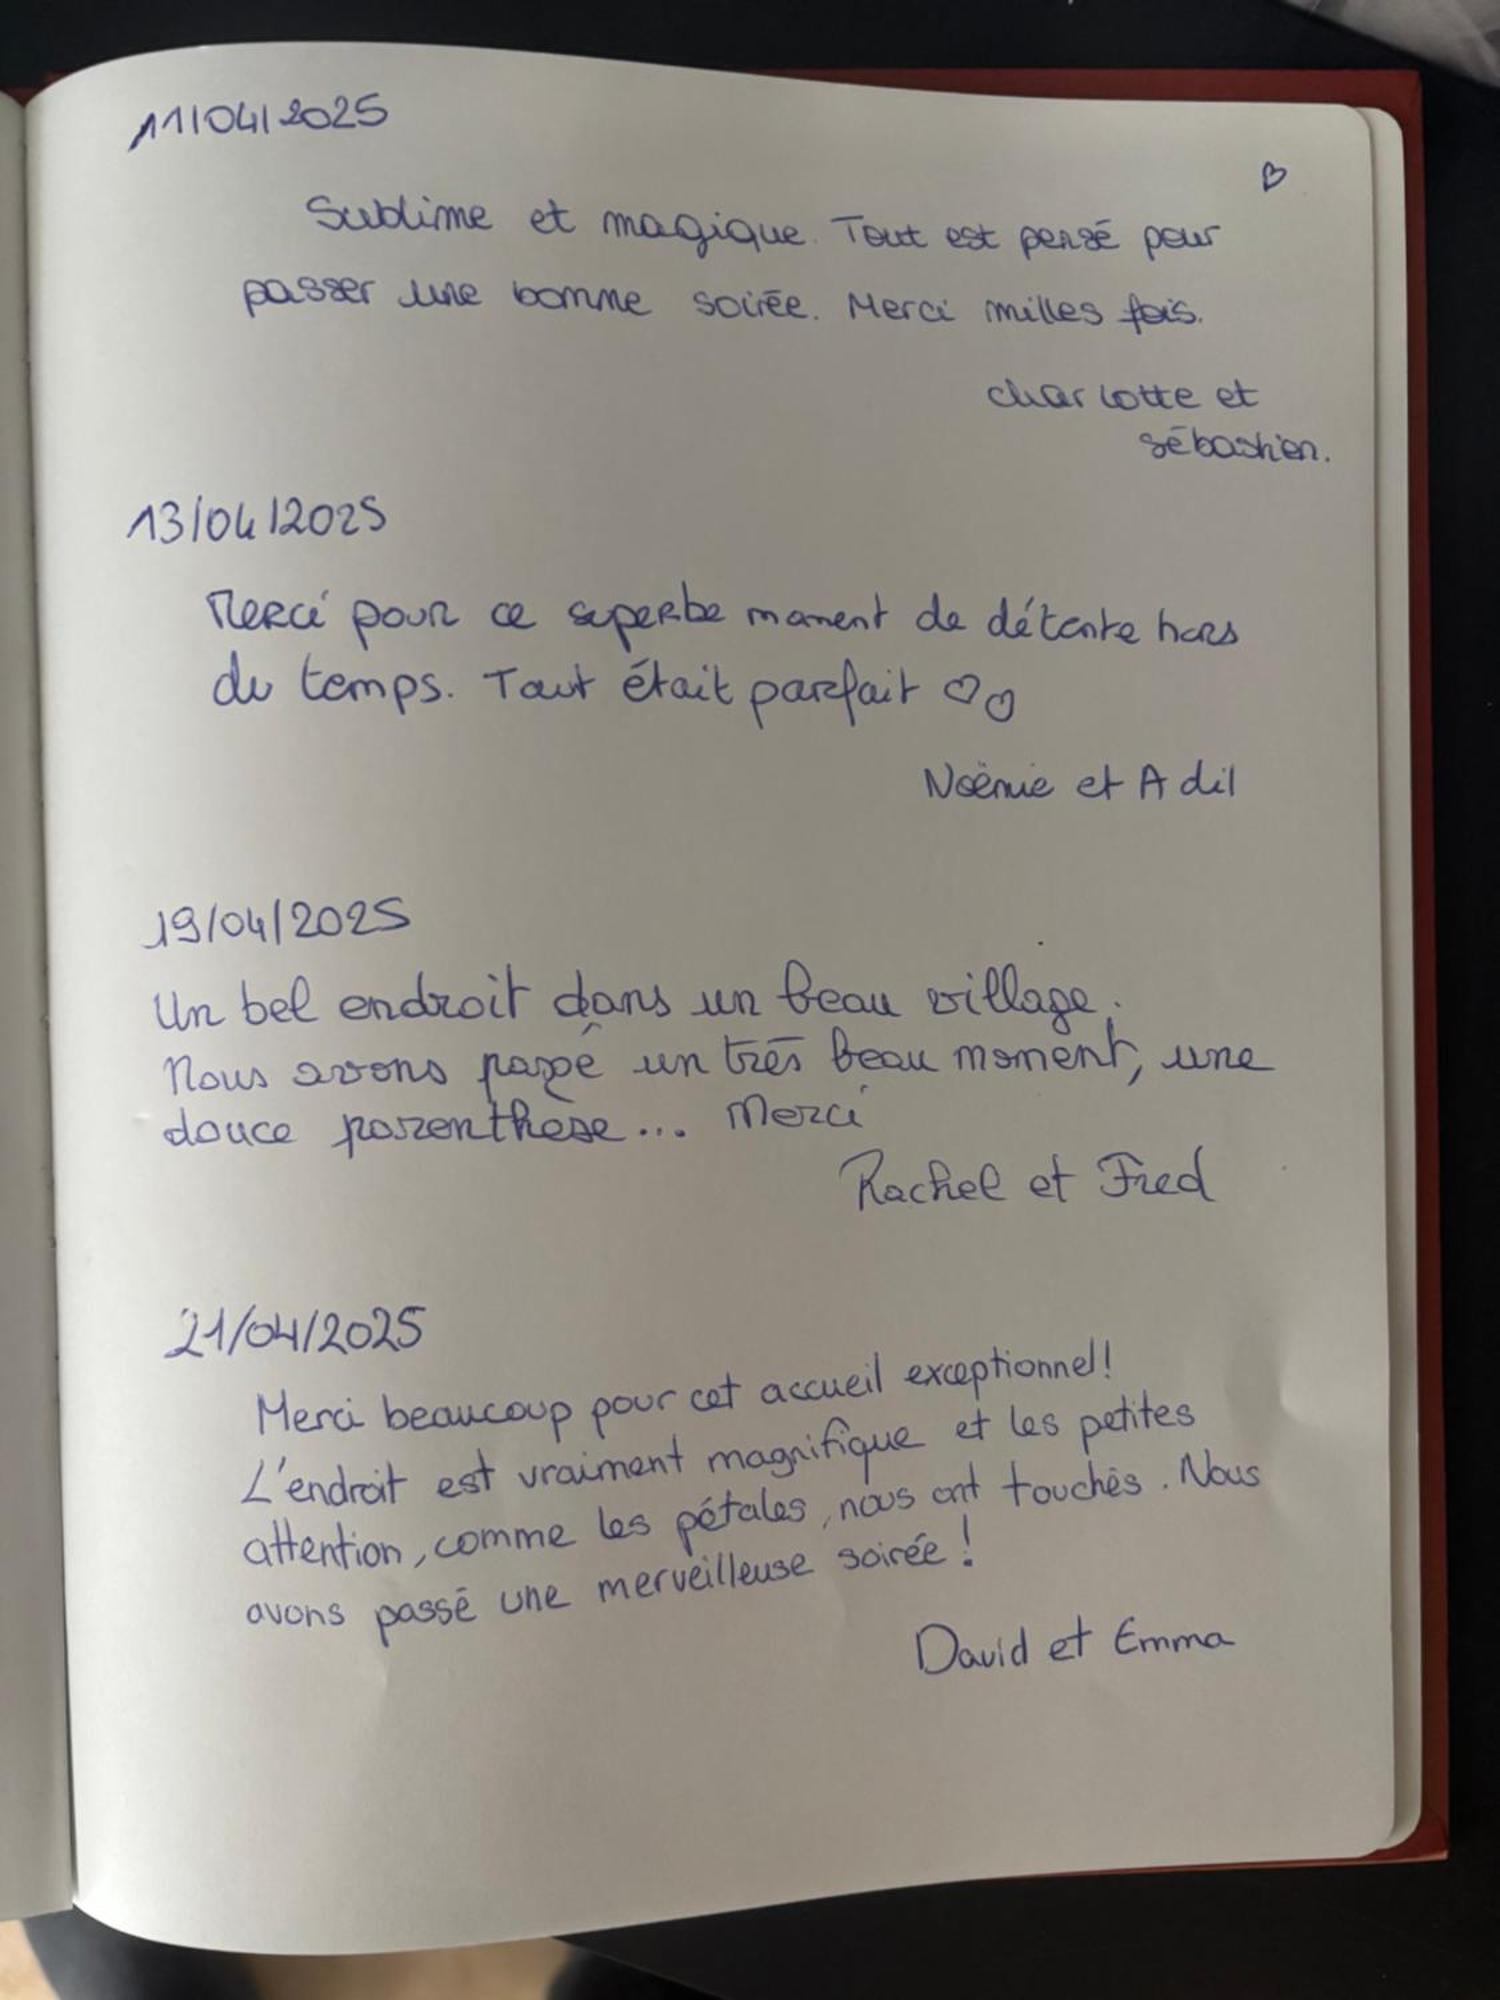 11/04/2025
Sublime et magique. Tout est pensé pour
passer une bonne soirée. Merci milles fois.
Charlotte et
Sébastien.
13/04/2025
Merci pour ce superbe moment de détente hors
du temps. Tout était parfait ♡♡
Noëmie et Adil
19/04/2025
Un bel endroit dans un beau village.
Nous avons passé un très beau moment, une
douce parenthèse... Merci
Rachel et Fred
21/04/2025
Merci beaucoup pour cet accueil exceptionnel!
L'endroit est vraiment magnifique et les petites
attention, comme les pétales, nous ont touchés. Nous
avons passé une merveilleuse soirée!
David et Emma